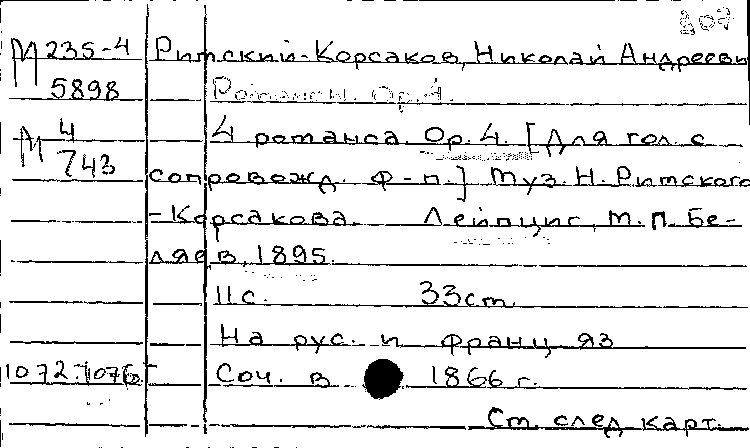 207
М 235-4 Римский-Корсаков, Николай Андреевич
5898 Романсы. Ор. 4.
М 4 4 романса. Ор. 4. [Для гол. с
743 сопровожд. ф-п.] Муз. Н. Римского
-Корсакова. Лейпциг, М. П. Бе-
ляев, 1895.
11 с. 33 см.
На рус. и франц. яз
1072-1076 Соч. в 1866 г.
См. след. карт.